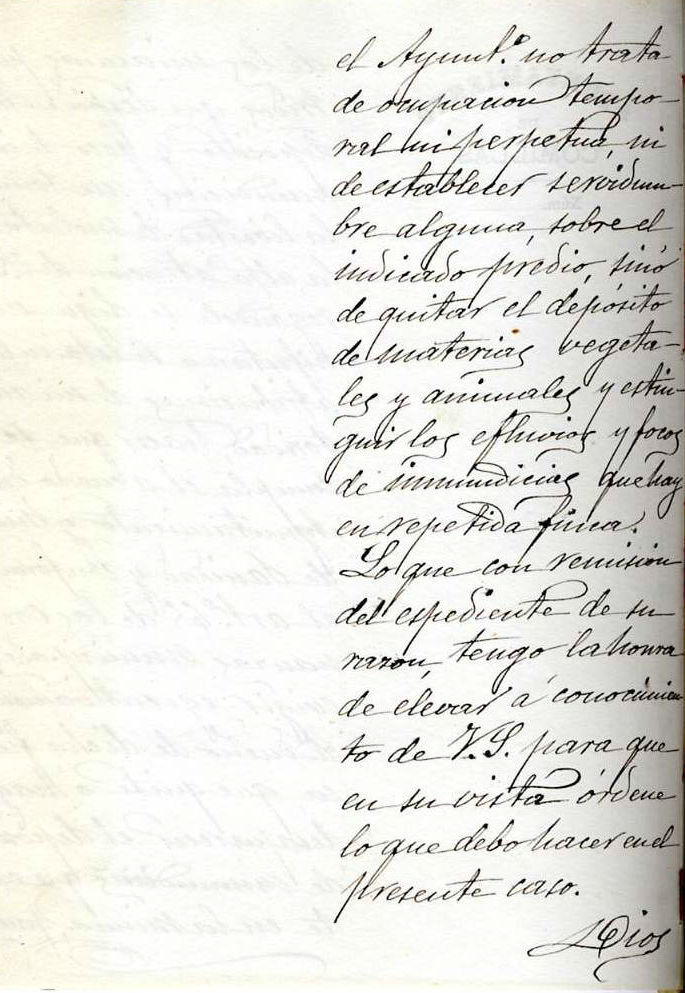 el Ayunt.º no trata
de ocupacion tempo-
ral ni perpetua, ni
de establecer servidum-
bre alguna, sobre el
indicado predio, sinó
de quitar el depósito
de materias vegeta-
les y animales y estin-
guir los efluvios y focos
de inmundicias que hay
en repetida finca.
Lo que con remision
del espediente de su
razon, tengo la honra
de elevar á conocimien
to de V.S. para que
en su vista órdene
lo que debo hacer en el
presente caso.
Dios